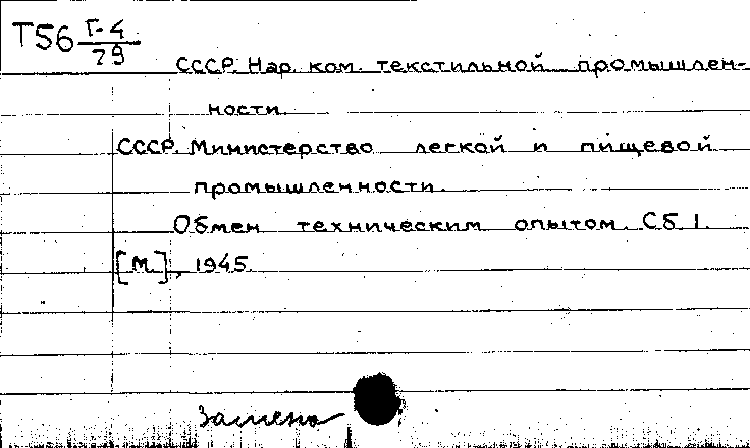 Т56 Г-4
29
СССР. Нар. ком. текстильной промышлен-
ности.
СССР. Министерство легкой и пищевой
промышленности.
Обмен техническим опытом. Сб 1.
[М.], 1945.
Замена